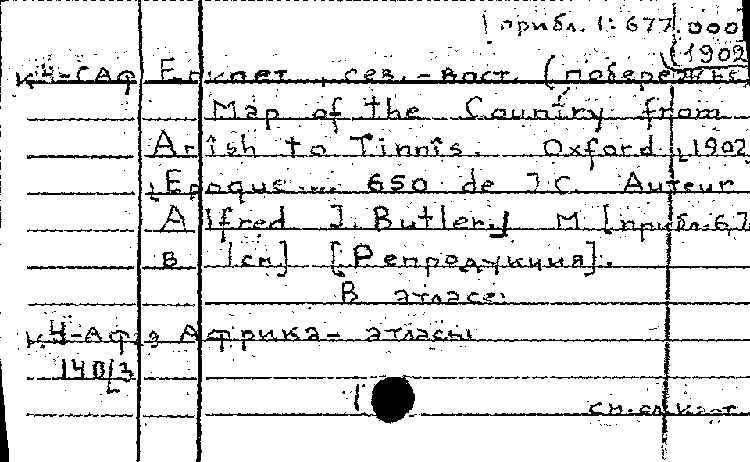 прибл. 1: 677.000
(1902
К4-САф Египет, сев.-вост. (побережье
Map of the Country from
Arish to Tinnis. Oxford [1902
[Epoque... 650 de J.C. Auteur
Alfred J. Butler.] М [прибл. 6,7
в 1см] [Репродукция].
В атласе:
К4-Аф з Африка-атласы
140/3
см.сл.карт